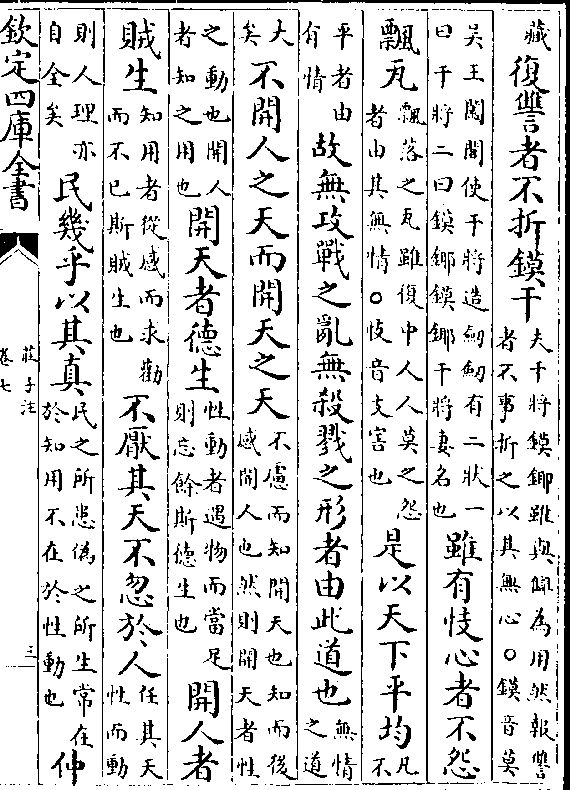 藏復讐者不折鏌干夫干將鏌鋣雖與仇為用然報讐者不事折之以其無心○鏌音莫
吳王闔閭使干將造劒劒有二狀一曰干將二曰鏌鋣鏌鋣干將妻名也雖有忮心者不怨
飄瓦飄落之瓦雖復中人人莫之怨者由其無情○忮音支害也是以天下平均凡不
平者由有情故無攻戰之亂無殺戮之形者由此道也無情之道
大矣不開人之天而開天之天不慮而知開天也知而後感開人也然則開天者性
之動也開人者知之用也開天者德生性動者遇物而當足則忘餘斯德生也開人者
賊生知用者從感而求勸而不已斯賊生也不厭其天不忽於人任其天性而動
則人理亦自全矣民幾乎以其真民之所患偽之所生常在於知用不在於性動也仲
欽定四庫全書
莊子注
卷七
三